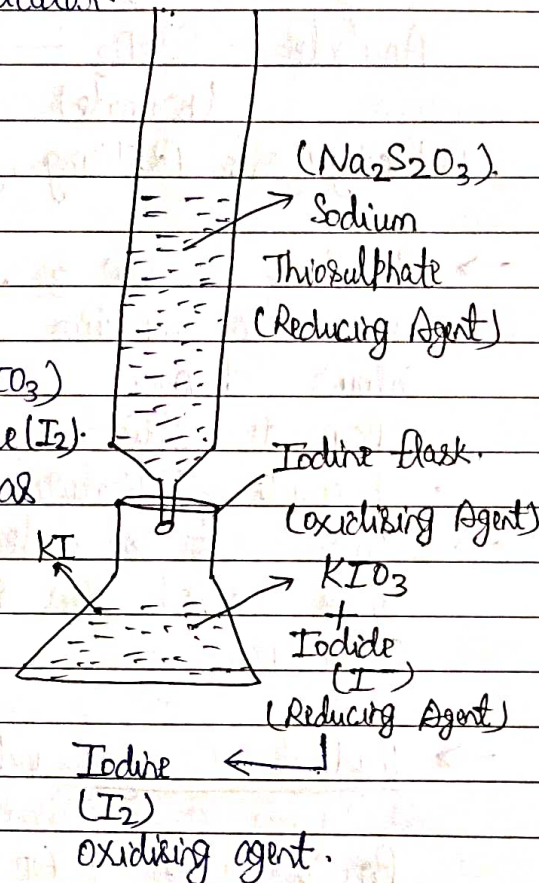 (Na2S2O3).
Sodium
Thiosulphate
(Reducing Agent)
e(I2).
as
Iodine flask.
(oxidising Agent)
KI
KIO3
+
Iodide
(I-)
(Reducing Agent)
Iodine
(I2)
oxidising agent.